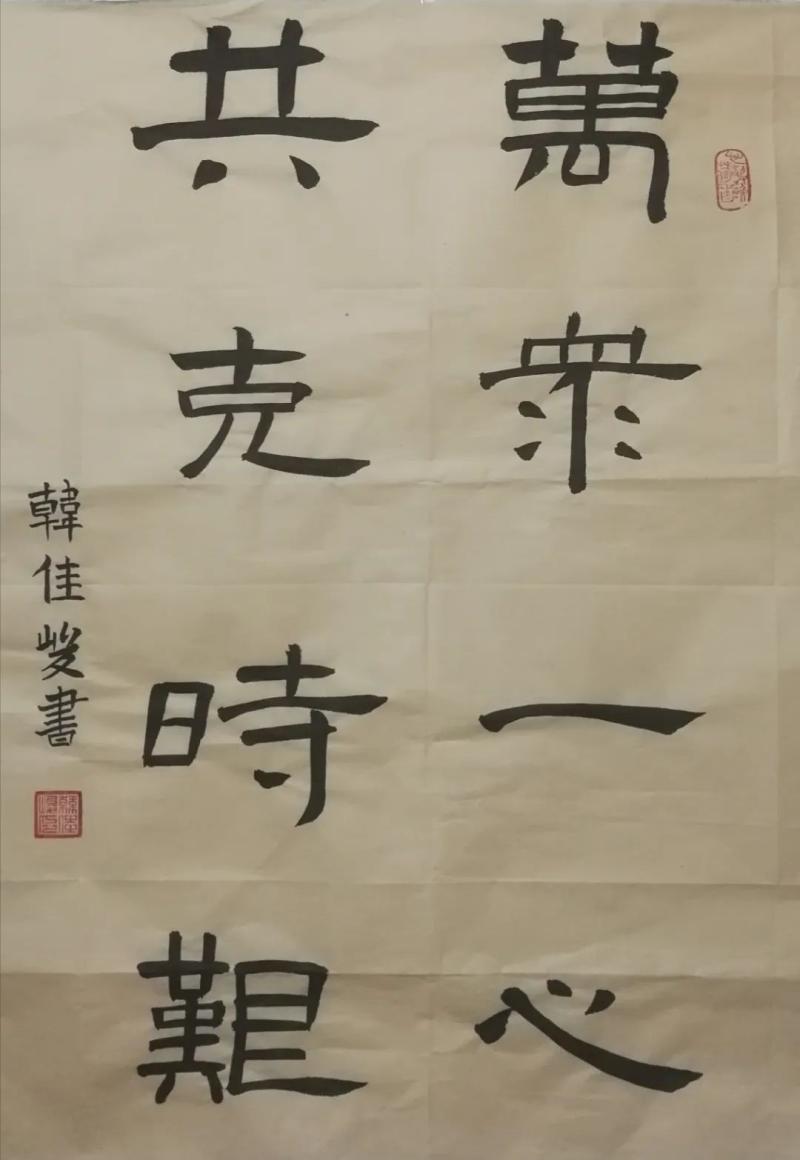 萬眾一心
共克時艱
韓佳峻書